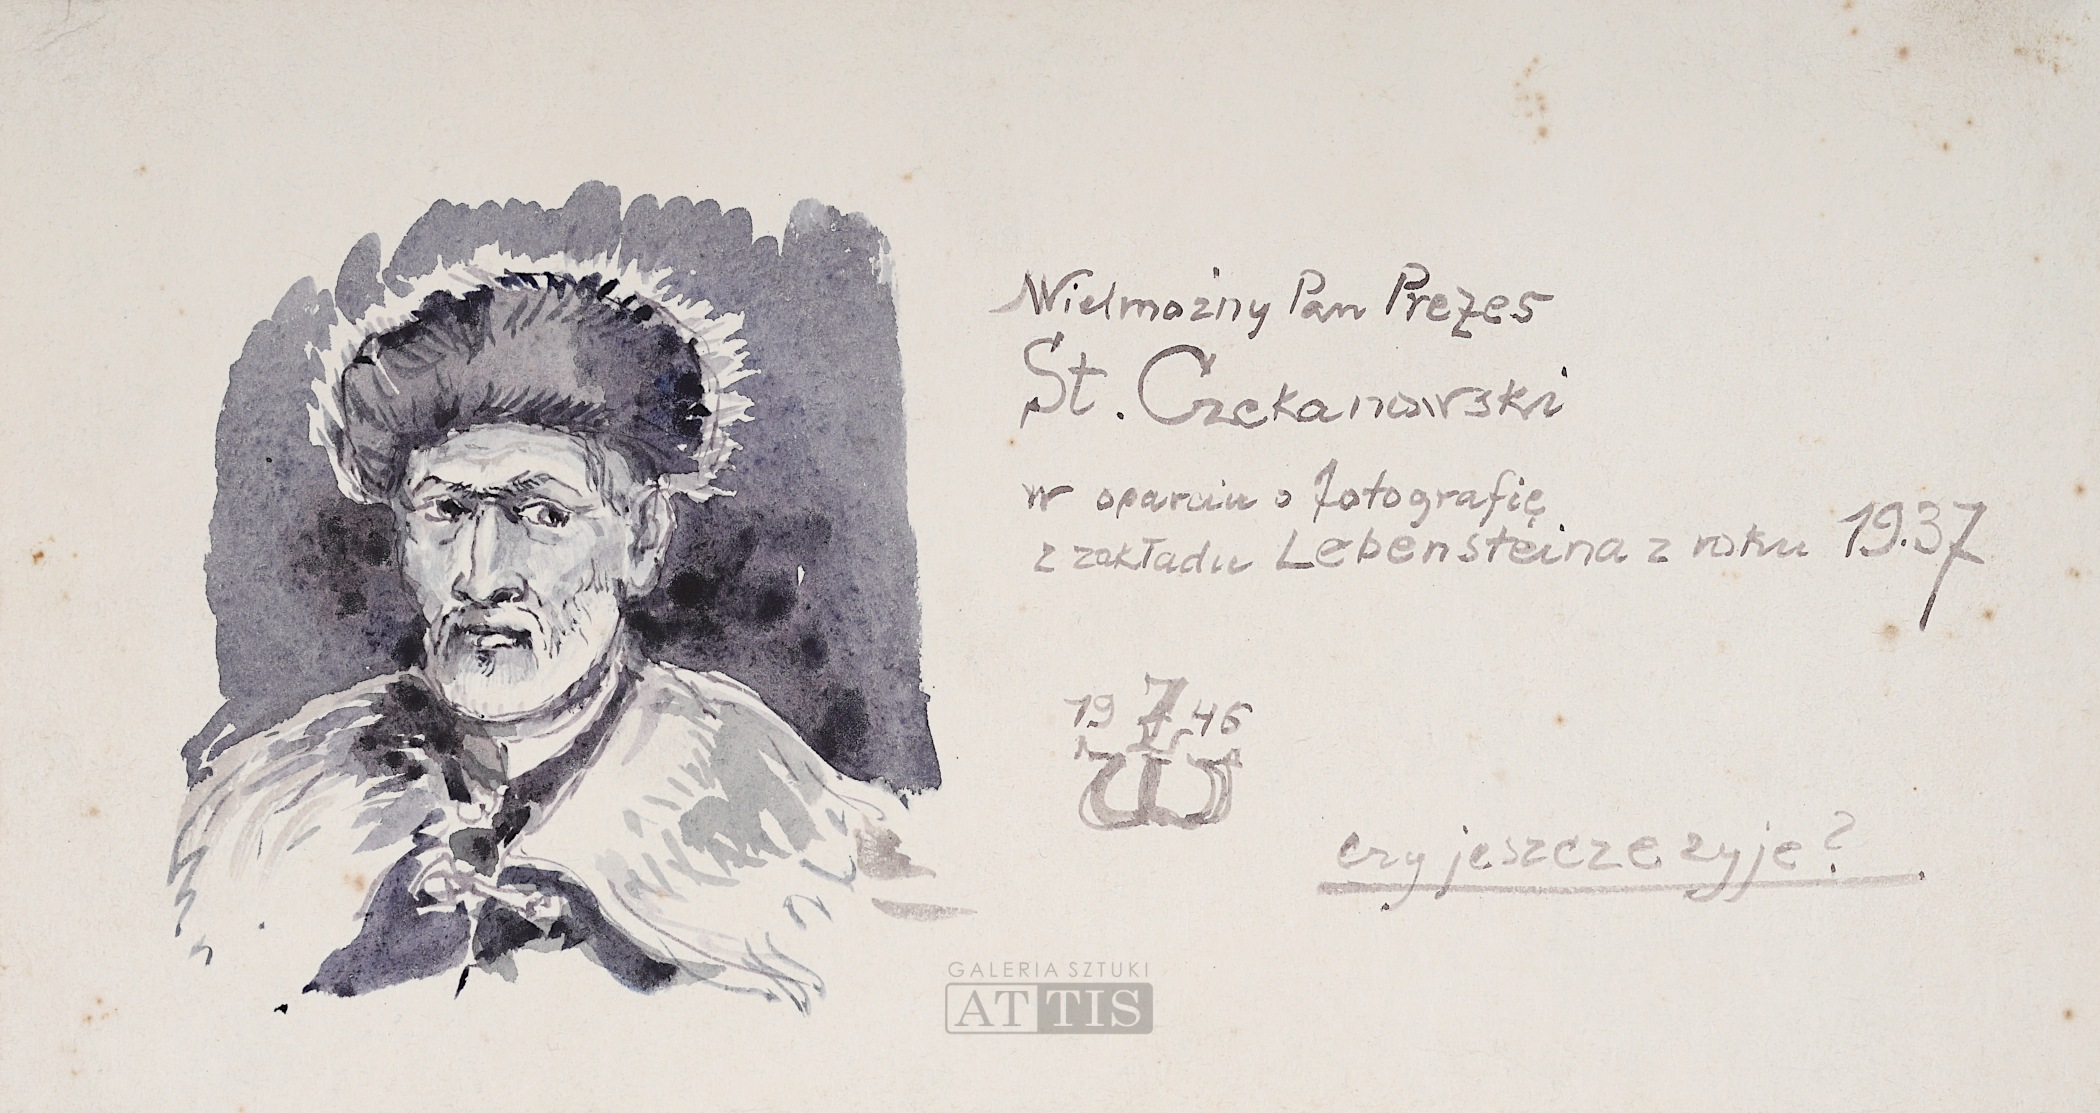 Wielmożny Pan Prezes
St. Czekanowski
w oparciu o fotografię
z zakładu Lebensteina z roku 1937
19 46
czy jeszcze zyje?
GALERIA SZTUKI
ATTIS